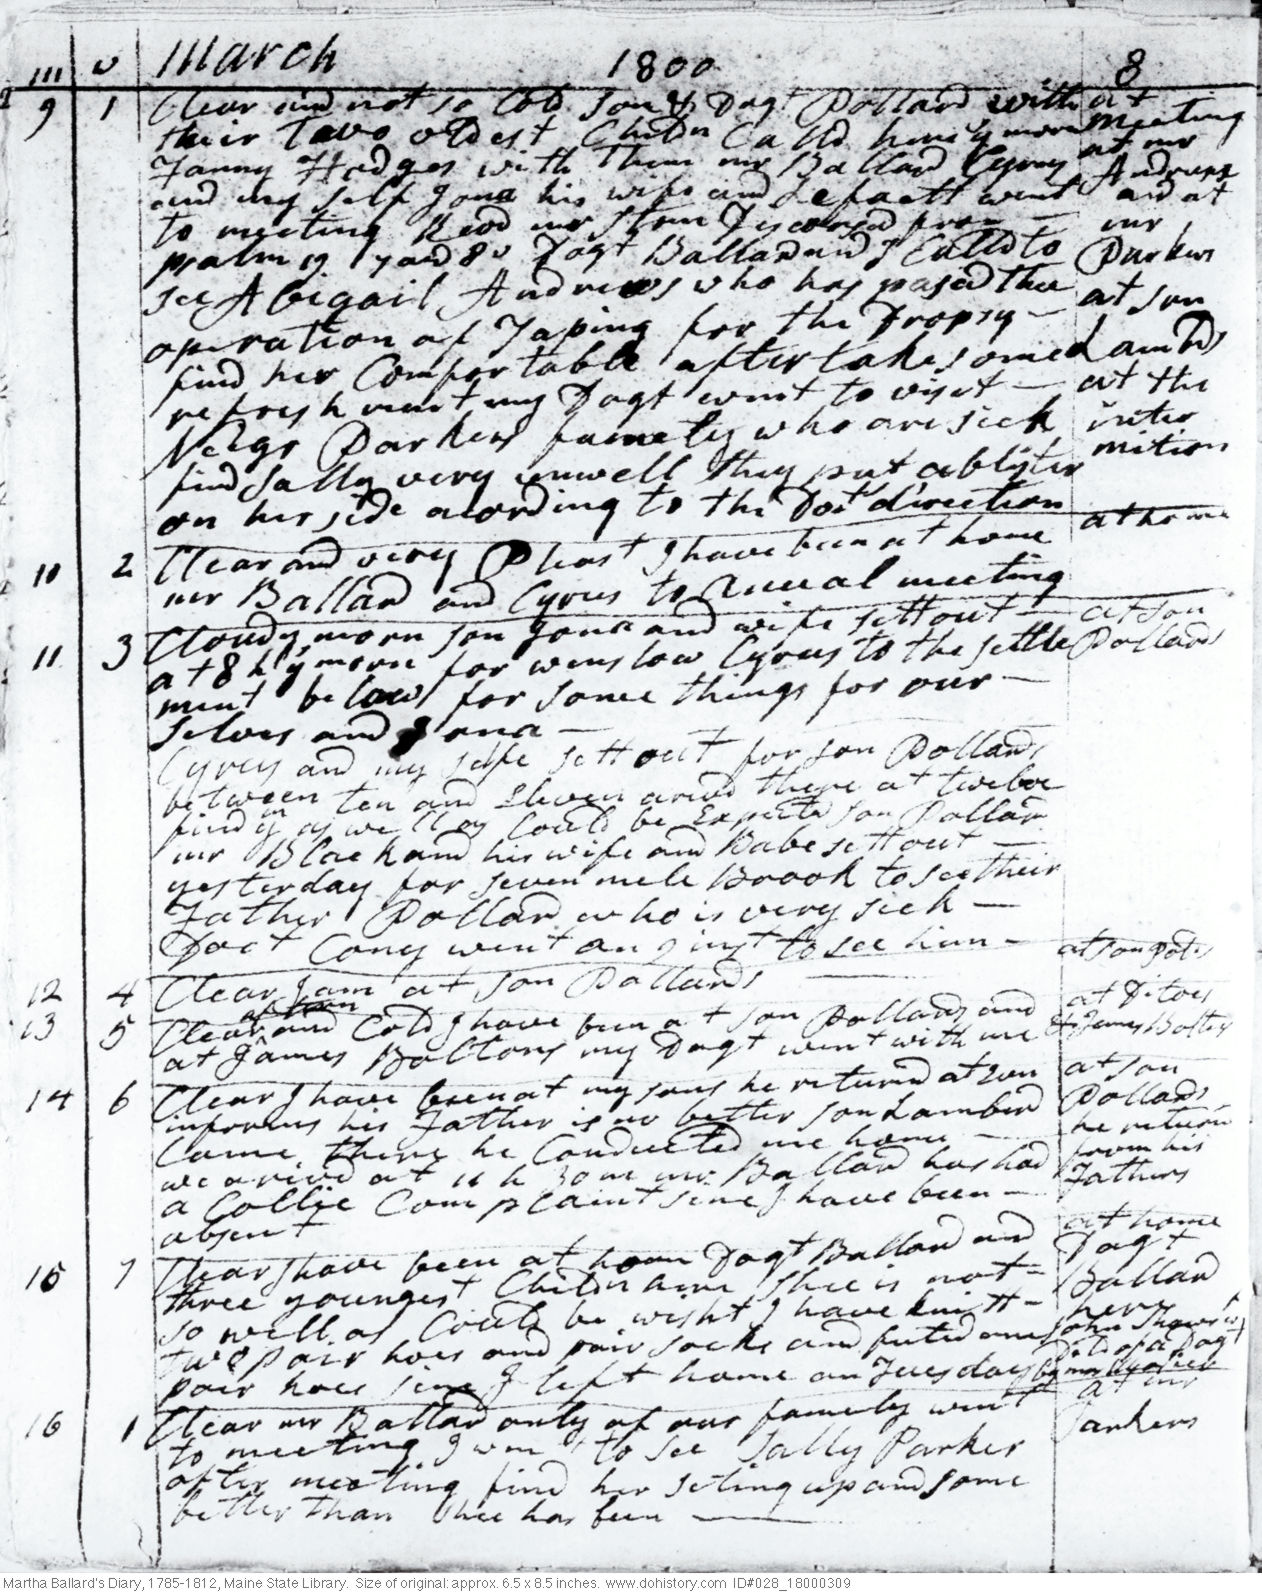 m w March 1800 8
9 1 Clear and not so Cold son & Dagt Pollard with
their two oldest Childn Calld here ys morn
Fanny Hodges with them mr Ballard Cyrus
and my self Jona his wife and Lafaett went
to meeting Revd mr Ston Discorsed from
psalm 19 7 and 8 v Dagt Ballard and I Calld to
see Abigail Andrews who has pased the
operation of Taping for the Dropsy
find her Comfortable after take some
refreshment my Dagt went to visit
Neigr Parkers famely who are sick
find Sally very unwell they put a blister
on her side acording to the Doct direction
at
meeting
at mr
Andrews
and at
mr
Parkers
at son
Lambds
at the
inter
mition
10 2 Clear and very Pleast I have been at home
mr Ballard and Cyrus to Anual meeting
at home
11 3 Cloudy morn son Jona and wife sett out
at 8 h ys morn for winslow Cyrus to the settle
ment below for some things for our
selves and Jona
Cyrus and my self sett out for son Pollards
between ten and Eleven arivd there at twelve
find ym as well as Could be Expected son Pollard
mr Black and his wife and Babe sett out
yesterday for seven mele Brook to see their
Father Pollard who is very sick
Doct Cony went on 9 inst to see him
at son
Pollards
12 4 Clear I am at son Pollards
at son Polds
13 5 Clear and Cold I have been at son Pollards and
at James Boltons my Dagt went with me
at Ditoes
& James Boltns
14 6 Clear I have been at my sons he returnd at
informs his Father is no better son Lambard
Came there he Conducted me home
we arived at 11 h Eve mr Ballard has had
a Collic Complaint sine I have been
absent
at son
Pollards
he return
from his
Fathers
15 7 Clear I have been at home Dagt Ballard and
three youngest Childn here shee is not
so well as Could be wisht I have knitt
two pair hoes and pair socks and futed one
pair hoes sine I left home on Tuesday
at home
Dagt
Ballard
here
John Shaws wf
Dld of a Dagt
by mrs
16 1 Clear mr Ballard only of our famely went
to meeting I went to see Sally Parker
after meeting find her seting up and some
better than shee has been
at mr
Parkers
Martha Ballard's Diary, 1785-1812, Maine State Library. Size of original: approx. 6.5 x 8.5 inches. www.dohistory.com ID#028_18000309